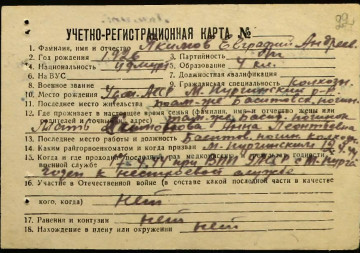 УЧЕТНО-РЕГИСТРАЦИОННАЯ КАРТА №
1. Фамилия, имя и отчество Якимов Евграфий Андрее
2. Год рождения 1926 3. Партийность б/п
4. Национальность удмурт 5. Образование 4 кл.
6. На ВУС 7. Должностная квалификация
8. Военное звание 9. Гражданская специальность колхозн.
10. Место рождения Удм. АССР М. Пургинский р-н
11. Последнее место жительства там-же
12. Где проживает в настоящее время семья (фамилия, имя и отчество жены или родителей и точный адрес) там же
Мать Анна Леонтьевна
13. Последнее место работы и должность починок колхоз
14. Каким райгорвоенкоматом и когда призван М-Пургинским
15. Когда и где проходил последнюю медкомиссию и годности к
военной службе при ВПП М-Пурга
годен к нестроевой службе
16. Участие в Отечественной войне (в составе какой последней части в качестве
кого, когда) нет
17. Ранения и контузии нет
18. Нахождение в плену или окружении нет